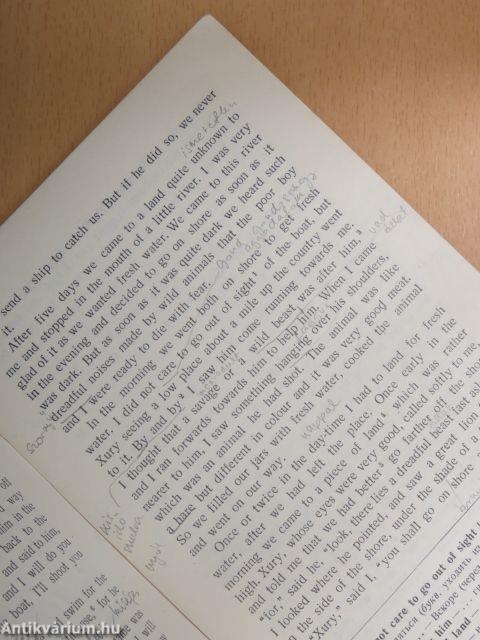 send a ship to catch us. But if he did so, we never
it.
After five days we came to a land quite unknown to
me and stopped in the mouth of a little river. I was very
glad of it as we wanted fresh water. We came to this river
in the evening and decided to go on shore as soon as it
was dark. But as soon as it was quite dark we heard such
dreadful noises made by wild animals that the poor boy
and I were ready to die with fear.
In the morning we went both on shore to get fresh
water. I did not care to go out of sight of the boat, but
Xury seeing a low place about a mile up the country went
to it. By and by I saw him come running towards me.
I thought that a savage or a wild beast was after him,
and I ran forwards towards him to help him. When I came
nearer to him, I saw something hanging over his shoulders,
which was an animal he had shot. The animal was like
a hare but different in colour and it was very good meat.
So we filled our jars with fresh water, cooked the animal
and went on our way.
Once or twice in the day-time I had to land for fresh
water, after we had left the place. Once early in the
morning we came to a piece of land, which was rather
high. Xury, whose eyes were very good, called softly to me
and told me that we had better go farther off the
"for," said he, "look, there lies a dreadful beast fast
I looked where he pointed, and saw a great lion
the side of the shore, under the shade of a
Xury," said I, "you shall go on shore
ismeretlen
vad
állat
nappal
way
him in the
back to the
and said to him,
and I will do you
boat. I'll shoot you
swim for the
for he
was
will
not care to go out of sight
Вскоре
him
and
Antikvárium.hu